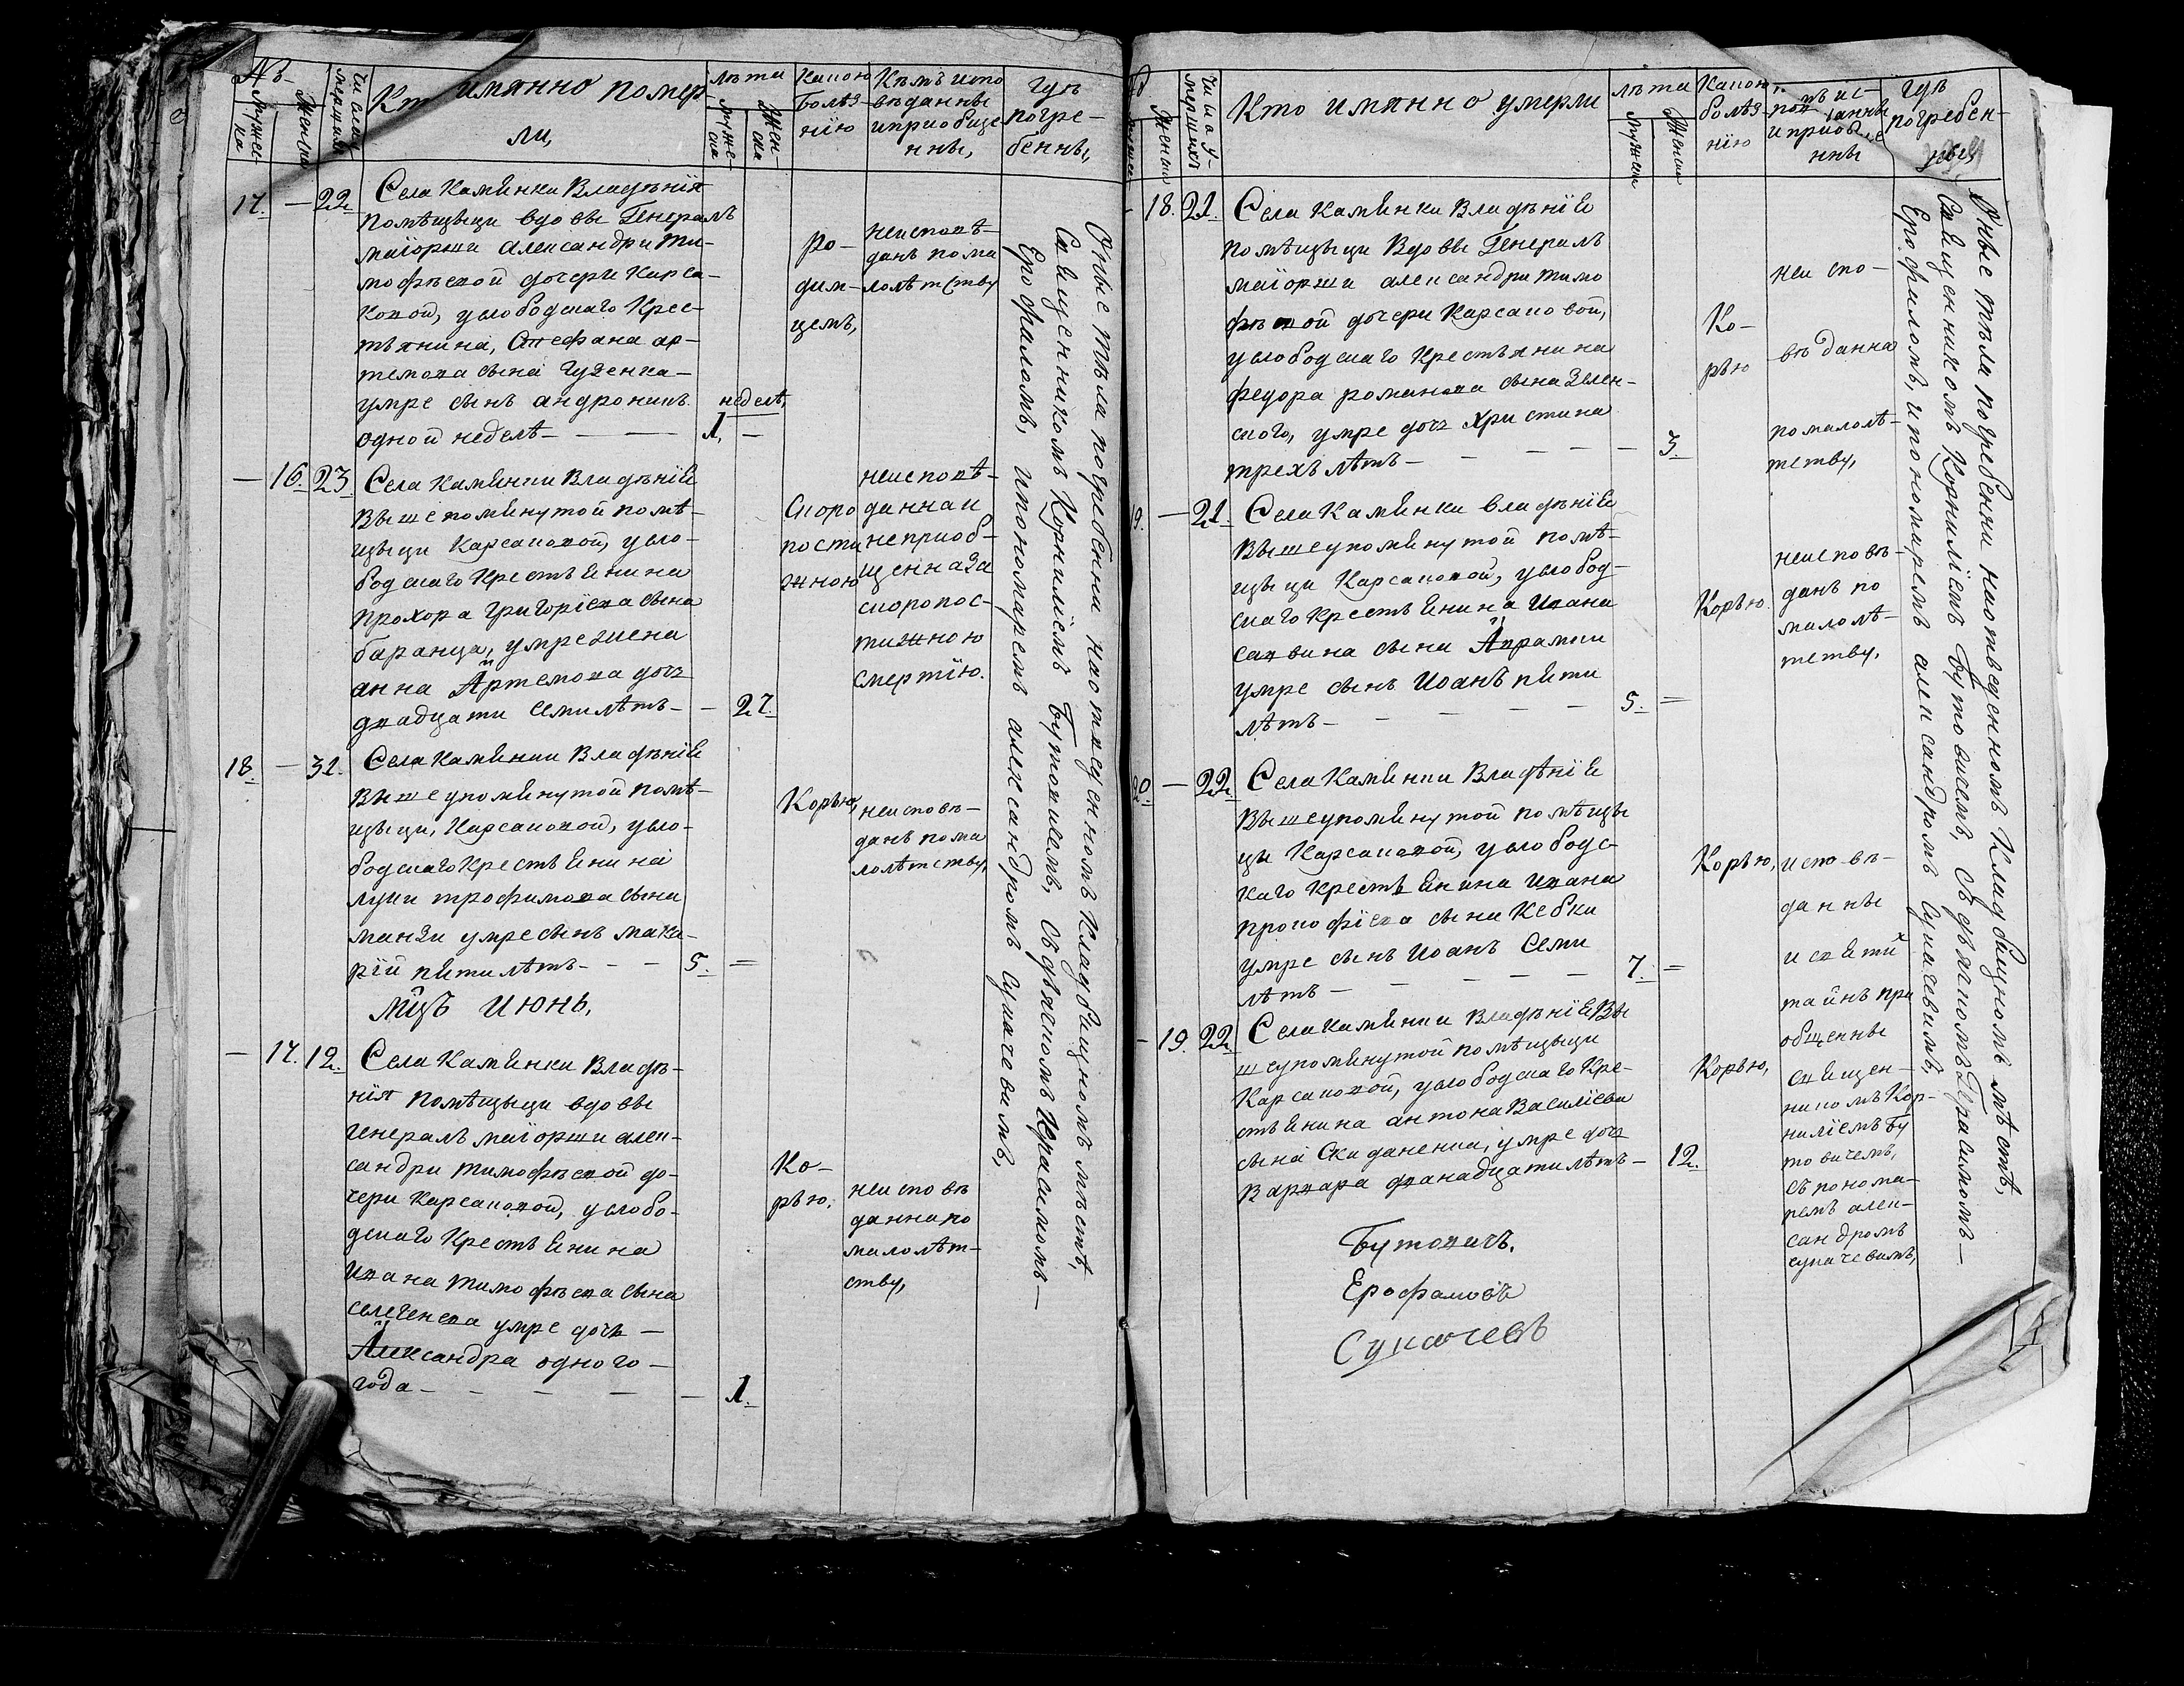 №
мужеска
женска
Числа умершихъ
Кто имянно помер
ли,
лѣта
мужеска
женска
Какою
болѣз-
нію
Кѣмъ испо
вѣданны
и приобще
нны,
гдѣ
погре-
бенны,
17. — 22.
Села Камянки Владѣнія
помѣщыци вдовы Генералъ
маіорши александри ти-
мофѣевой дочери Карса-
ковой, услободскаго Крес-
тянина, Стефана ар-
темова сына Гузенка-
умре сынъ андроникъ
одной неделѣ — —
неделѣ,
1. —
ро-
дим-
цемъ,
неисповѣ-
данъ пома
лолѣтству
— 16. 23.
Села Камянки Владѣнія
Вышепомянутой помѣ-
щыци Карсаковой, усло-
бодскаго Крестянина
прохора григоріева сына
баранца, умре жена
анна Артемова доч
двадцати семилѣтъ —
— 27.
Скоро
пости
жною
неисповѣ-
данна и
неприоб-
щенна за
скоропос-
тижною
смертію.
18. — 31.
Села Камянки Владѣнія
Вышеупомянутой помѣ-
щыци, Карсаковой, усло-
бодскаго Крестянина
луки трофимова сына
манзи умре сынъ мака-
рій пяти лѣтъ — —
5. =
Корью,
неисповѣ-
данъ пома
лолѣтству,
мцъ Июнь,
— 17. 12.
Села Камянки Владѣ-
нія помѣщыци вдовы
генералъ маіорши алек-
сандри тимофѣевой до-
чери Карсаковой, услобо-
дскаго Крестянина
Ивана тимофѣева сына
умре дочь —
Александра одного —
года — — — —
— 1.
Ко-
рью.
неисповѣ
данна по
малолѣт-
ству,
Оные тѣла погребенни на отведенномъ Кладбищномъ мѣстѣ,
Священникомъ Корниліемъ Бутовичемъ, Съ дьякомъ Герасимомъ —
Ерофаломъ, и пономаремъ александромъ Сукачевимъ,
женски
Числа умершихъ
Кто имянно умерли
лѣта
мужски
женски
Какою
болѣз-
нію
и приоб
нны
гдѣ
погребен-
ныя
— 18. 21.
Села Камянки Владѣнія
помѣщыци Вдовы Генералъ
маіорши александри тимо
фѣвой дочери Карсаковой,
услободскаго Крестянина
федора романова сына Зелен-
ского, умре доч христина
трехъ лѣтъ — — — —
— 3.
Ко-
рью
неиспо-
вѣданна
по малолѣ-
тству,
19. — 21.
Села Камянки владѣнія
Вышеупомянутой помѣ-
щыци Карсаковой, услобод-
скаго Крестянина Ивана
саввина сына Аврамки
умре сынъ Иоанъ пяти
лѣтъ — — — —
5. =
Корью.
неисповѣ-
данъ по
малолѣ-
тству,
20. — 22.
Села Камянки Владѣнія
Вышеупомянутой помѣщы
цы Карсаковой, услободс-
каго Крестянина Ивана
прокофіева сына Кебки
умре сынъ Иоанъ Семи
лѣтъ — — — —
7. =
Корью,
исповѣ-
данны
и святи
тайнъ при
общенны
— 19. 22.
Села Камянки Владѣнія Вы
шеупомянутой помѣщыци
Карсаковой, услободскаго Кре-
стянина антона Василіева
сына Скиданенка, умре доч
Варвара дванадцати лѣтъ —
12.
Корью,
священ-
никомъ Кор-
ниліемъ Бу
товичемъ,
съ понома-
ремъ алек-
сандромъ
сукачевимъ,
Оные тѣла погребенни на отведенномъ Кладбищномъ мѣстѣ,
Священникомъ Корниліемъ Бутовичемъ, Съ дьякомъ Герасимомъ —
Ерофаломъ, и пономаремъ александромъ Сукачевимъ,
Бутовичъ.
Ерофаловъ
Сукачевъ